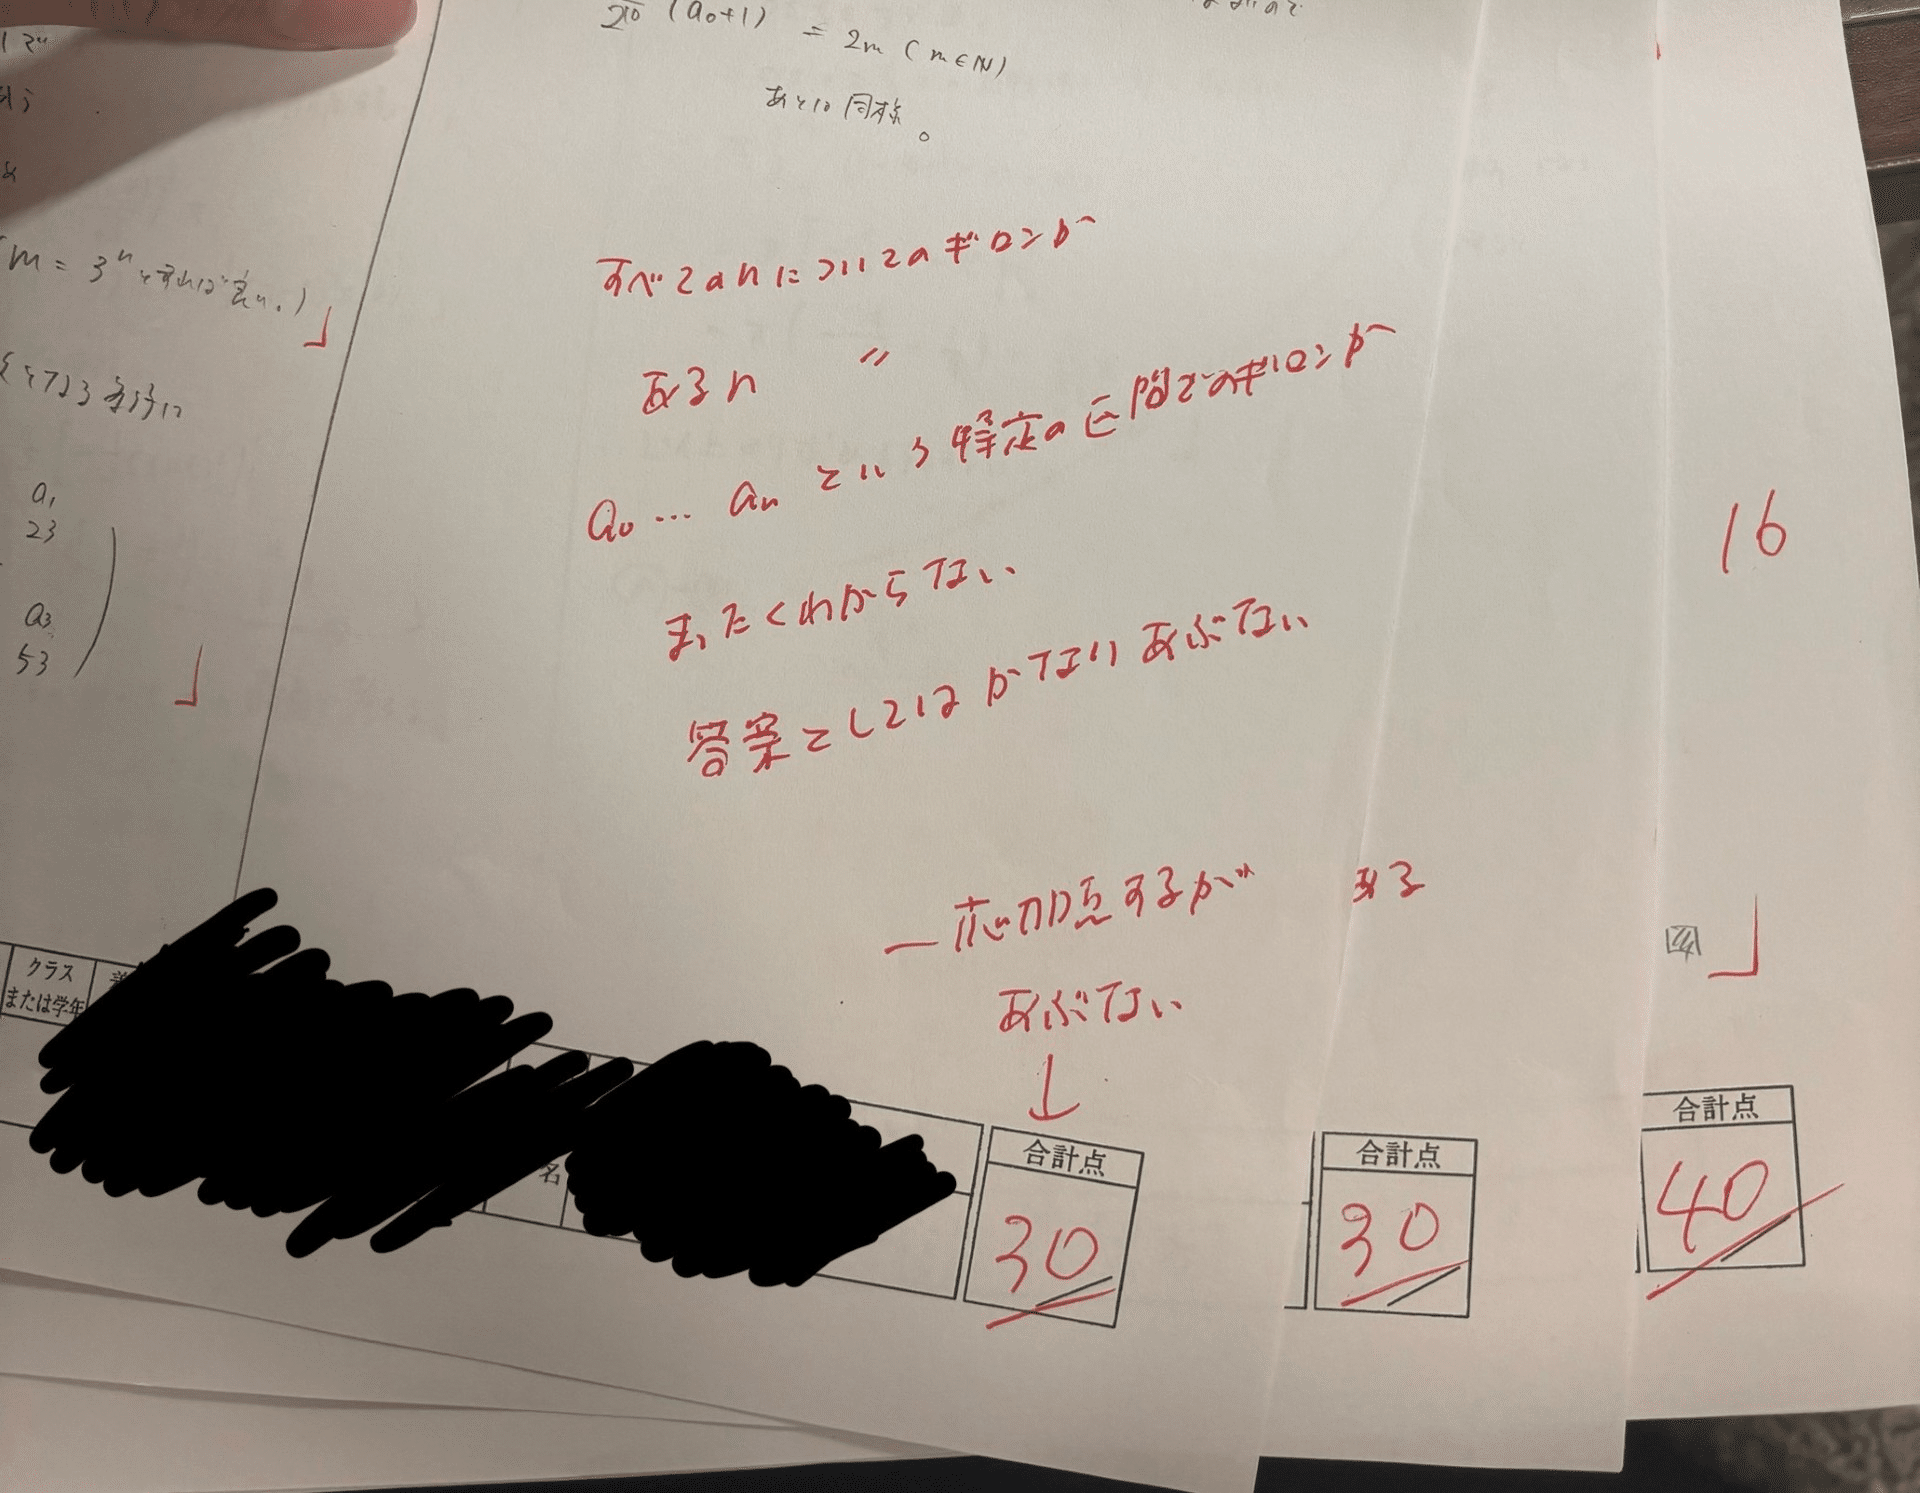 (a₀+1) = 2m (m∈N)
あとは同様。
m = 3ⁿとすれば良い。)
となる条件は
a₁
23
a₃
53
すべてのnについてのギロンか
ある n 〃
a₀ … aₙ という特定の区間でのギロンか
まったくわからない
答案としてはかなりあぶない
一応加点するが
あぶない
↓
ある
16
クラス
または学年
名
合計点
30
合計点
30
合計点
40